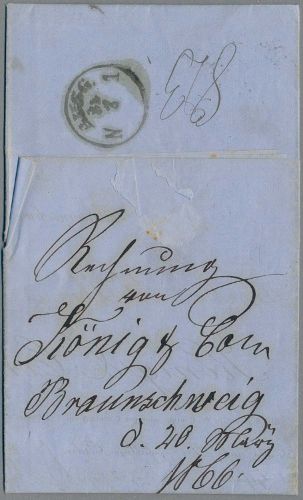 Rechnung
von
König & Com
Braunschweig
d. 20. März
1866.